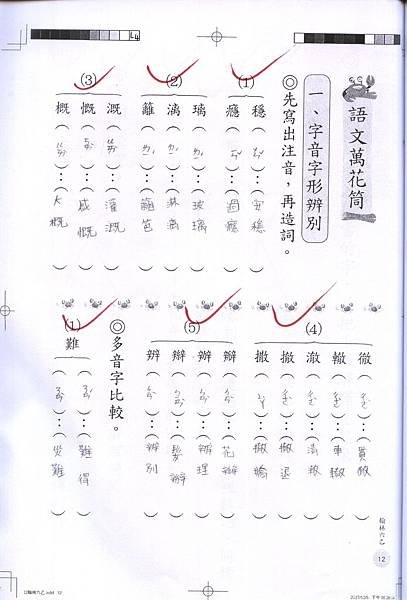 語文萬花筒
一、字音字形辨別
◎先寫出注音，再造詞。
(1)
穩（ㄨㄣˇ）：（安穩）
癮（ㄧㄣˇ）：（過癮）
(2)
璃（ㄌㄧˊ）：（玻璃）
漓（ㄌㄧˊ）：（淋漓）
籬（ㄌㄧˊ）：（籬笆）
(3)
溉（ㄍㄞˋ）：（灌溉）
慨（ㄎㄞˇ）：（感慨）
概（ㄍㄞˋ）：（大概）
(4)
徹（ㄔㄜˋ）：（貫徹）
轍（ㄔㄜˋ）：（車轍）
澈（ㄔㄜˋ）：（清澈）
撤（ㄔㄜˋ）：（撤退）
撒（ㄙㄚ）：（撒嬌）
(5)
瓣（ㄅㄢˋ）：（花瓣）
辦（ㄅㄢˋ）：（辦理）
辮（ㄅㄧㄢˋ）：（髮辮）
辨（ㄅㄧㄢˋ）：（辨別）
◎多音字比較。
(1)
難（ㄋㄢˊ）：（難得）
（ㄋㄢˋ）：（災難）
翰林六乙
12